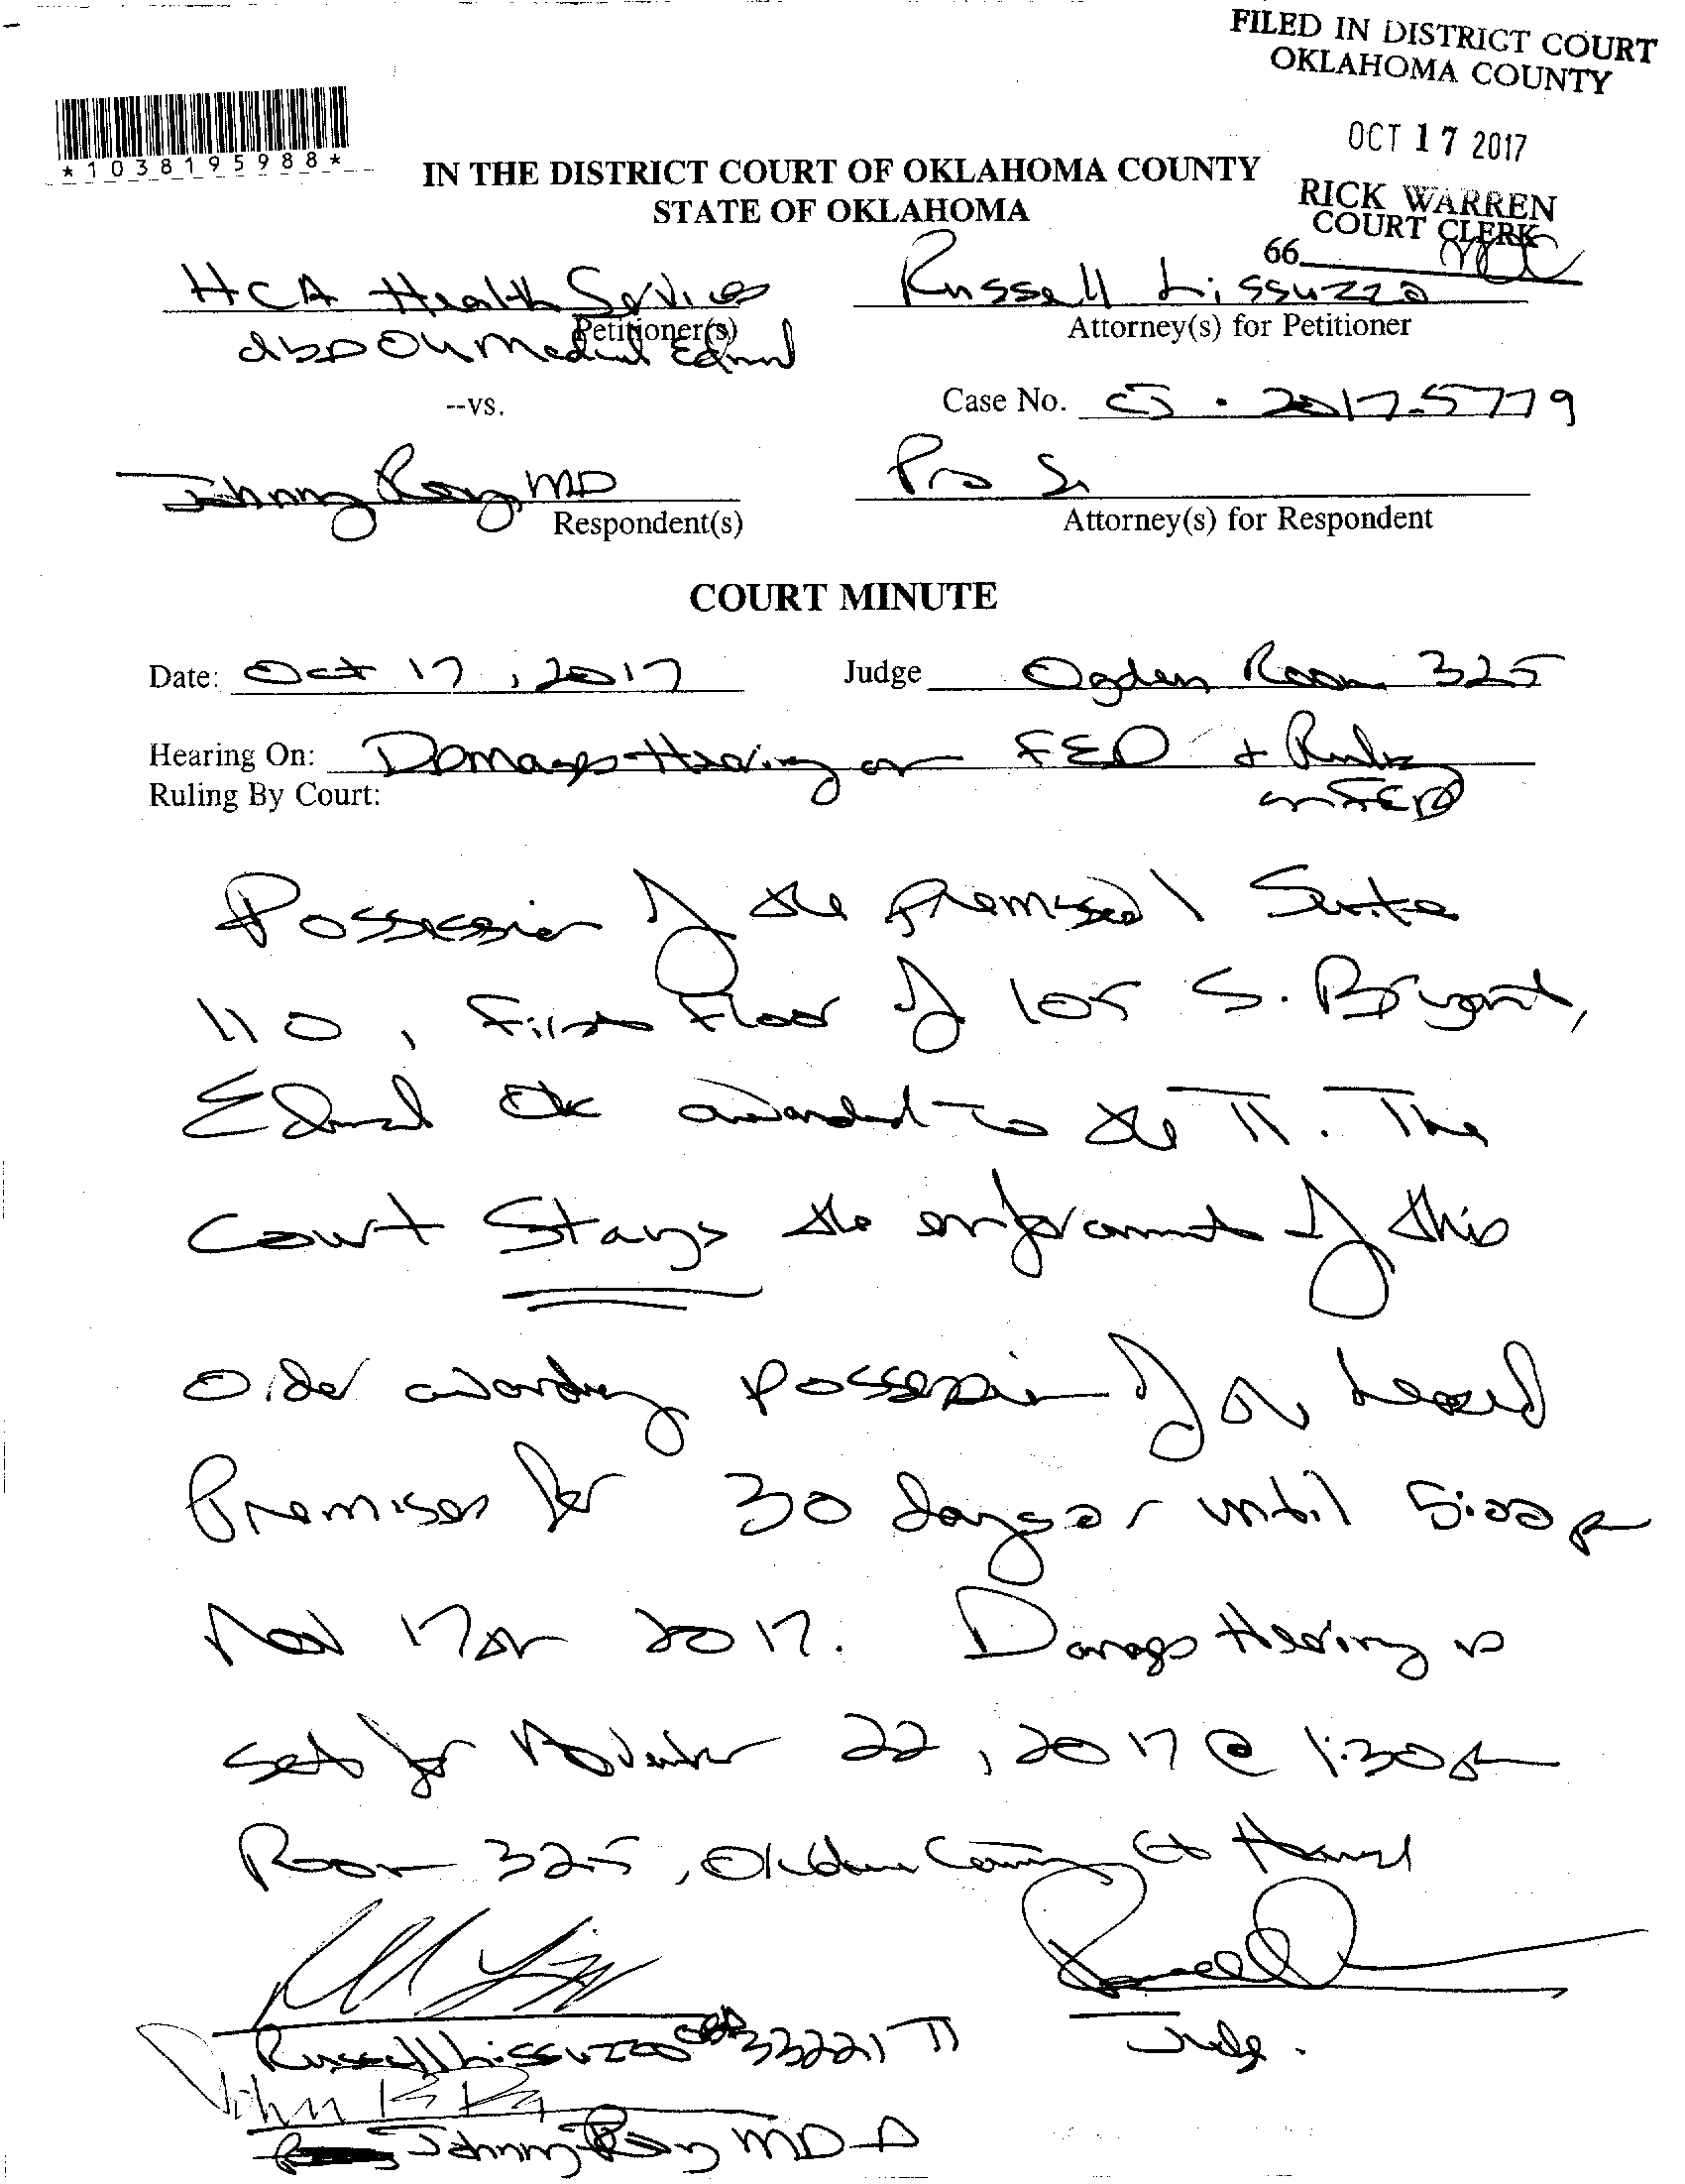 FILED IN DISTRICT COURT
OKLAHOMA COUNTY
OCT 17 2017
RICK WARREN
COURT CLERK
66
*1038195988*
IN THE DISTRICT COURT OF OKLAHOMA COUNTY
STATE OF OKLAHOMA
HCA Health Services
Petitioner(s)
dba OU Medical Edmond
Russell Lissuzzo
Attorney(s) for Petitioner
--vs.
Case No. CJ-2017-5779
Johnny Roy MD
Respondent(s)
Pro Se
Attorney(s) for Respondent
COURT MINUTE
Date: Oct 17, 2017 Judge Ogden Room 325
Hearing On: Damages Hearing on FED + Ruling
on FED
Ruling By Court:
Possession of the premises Suite
110, First Floor of 105 S. Bryant,
Edmond Ok awarded to the Π. The
Court Stays the enforcement of this
Order awarding possession of the leased
Premises for 30 days or until 5:00 pm
Nov 17th 2017. Damages Hearing is
set for November 22, 2017 @ 1:30 pm
Room 325, Oklahoma County Ct House
Russell Lissuzzo OBA 33221 Π
Judge.
Johnny Roy MD Δ